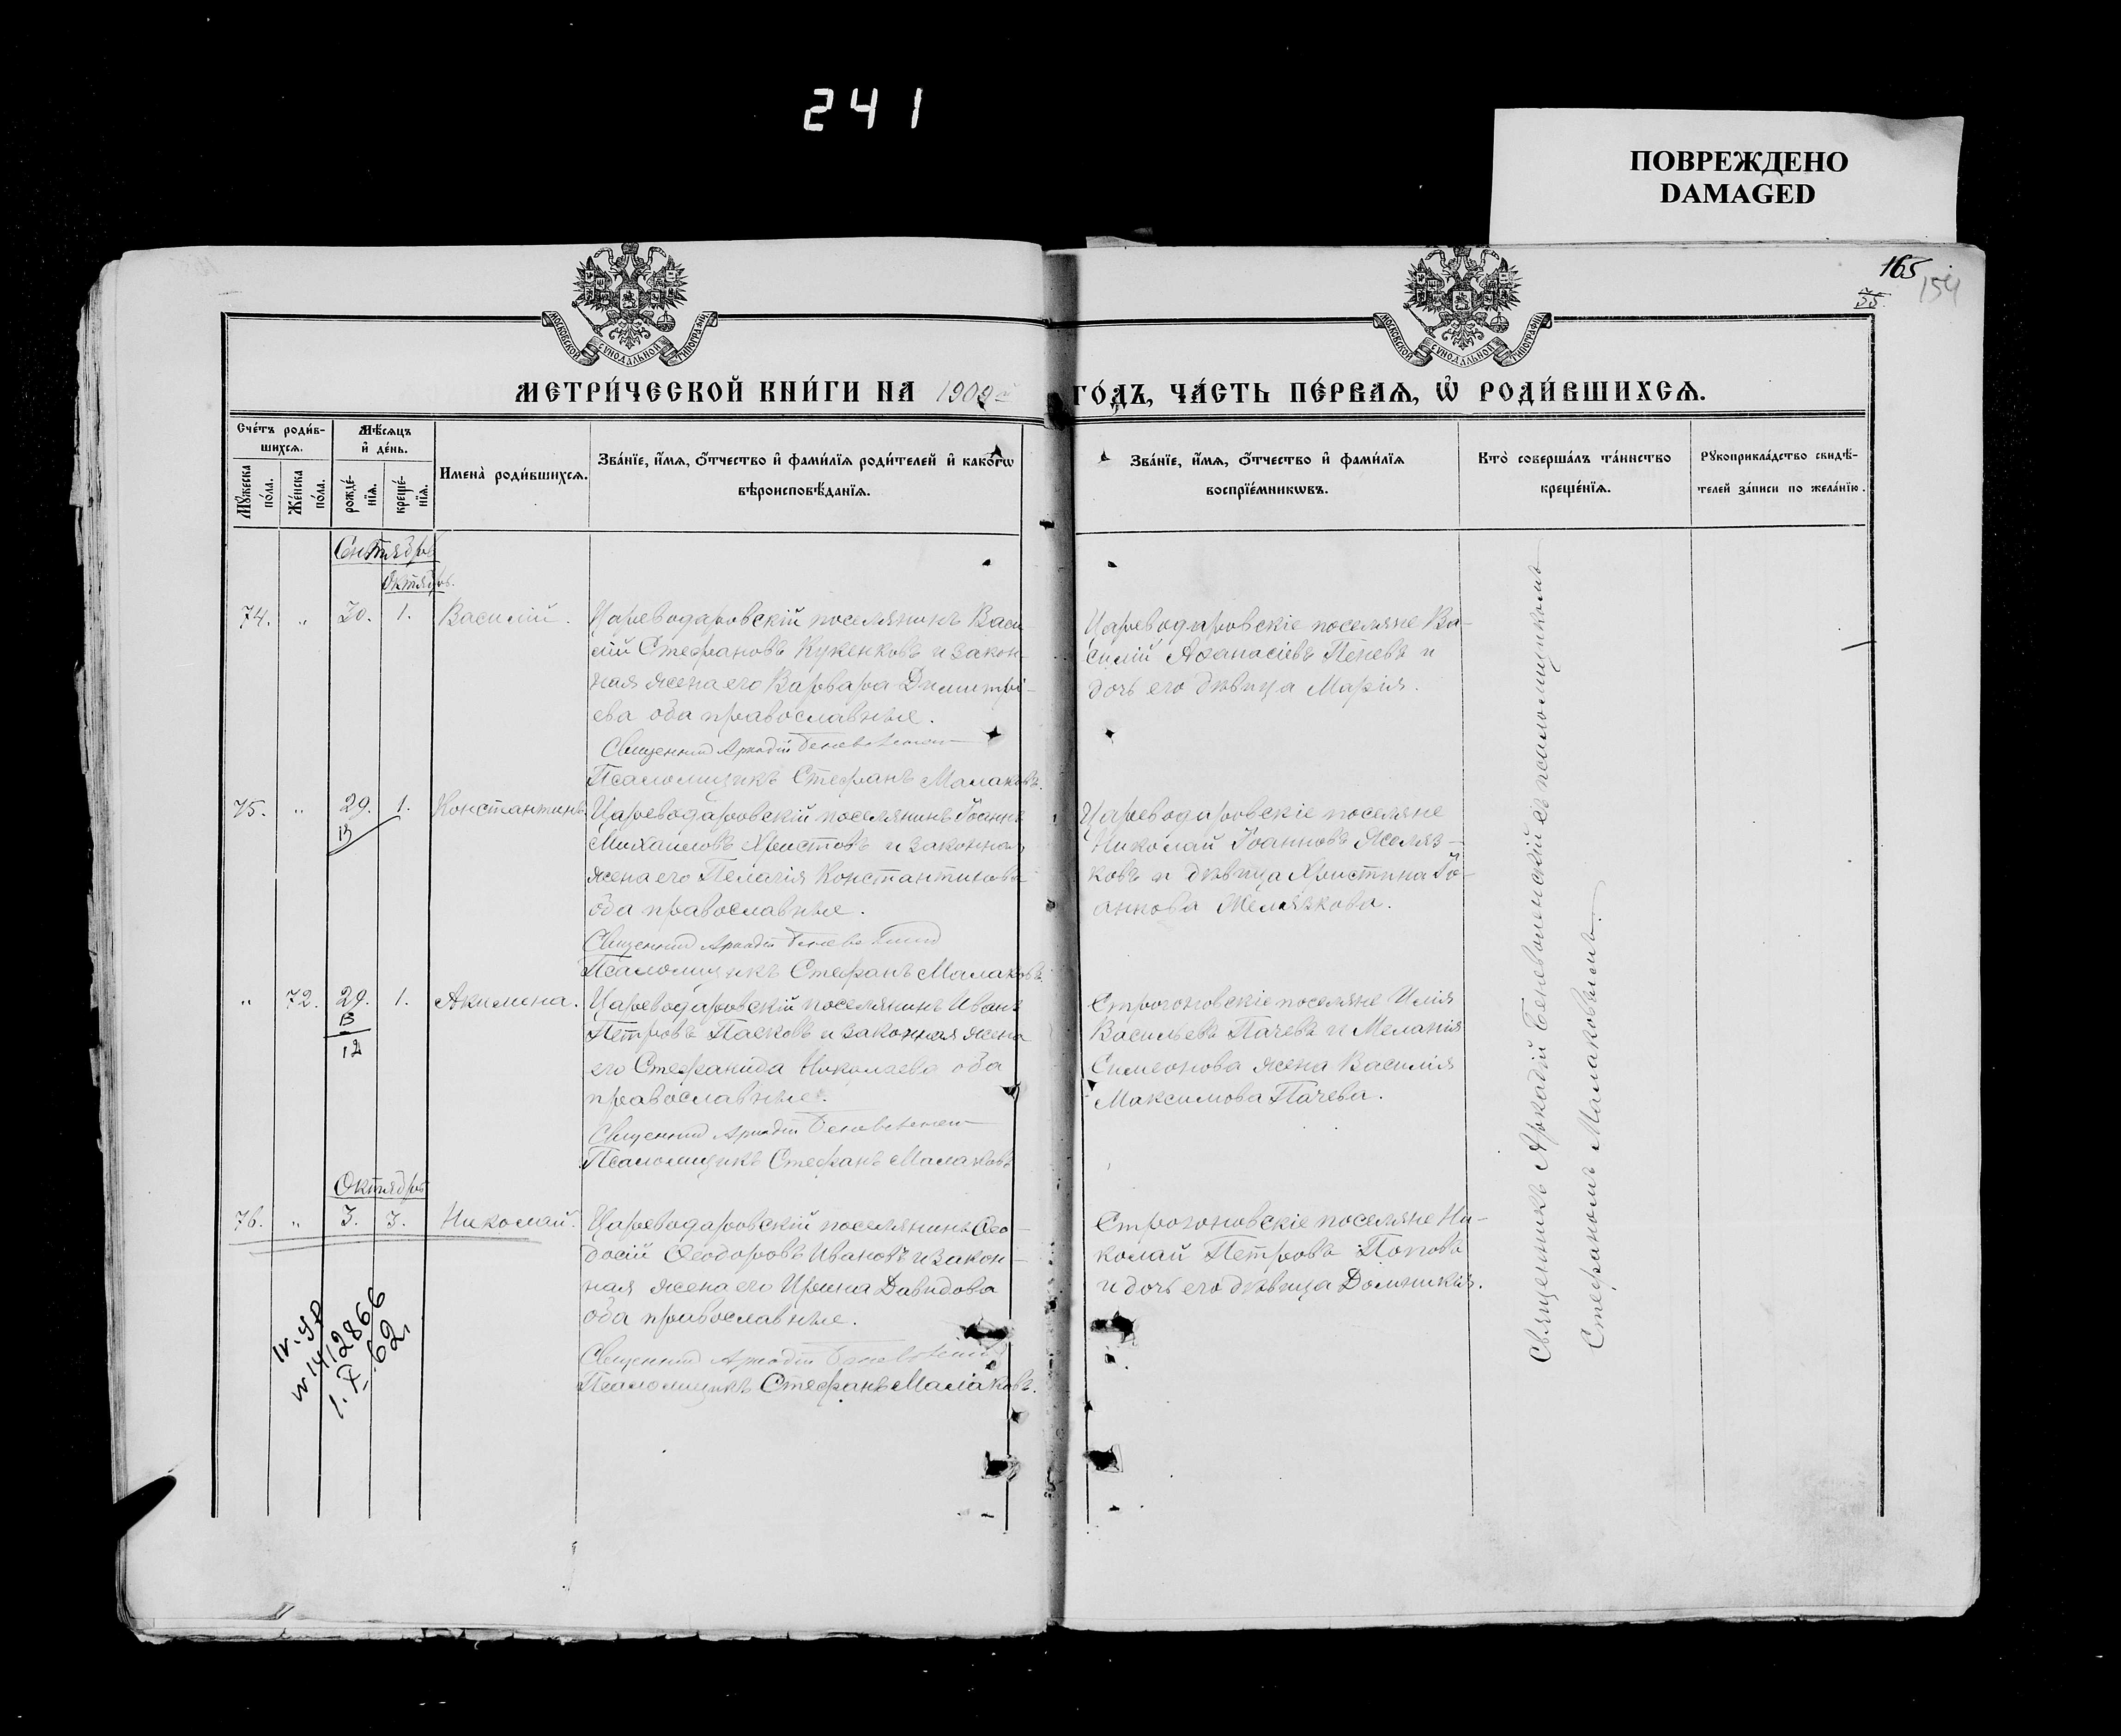 241
ПОВРЕЖДЕНО
DAMAGED
165
154
МОСКОВСКОЙ СѴНОДАЛЬНОЙ ТИПОГРАФІИ
МОСКОВСКОЙ СѴНОДАЛЬНОЙ ТИПОГРАФІИ
МЕТРИ́ЧЕСКОЙ КНИ́ГИ НА 1909й ГО́ДЪ, ЧА́СТЬ ПЕ́РВАѦ, Ѡ҆ РОДИ́ВШИХСѦ.
Сче́тъ роди́в-
шихсѧ.
Мꙋ́жеска по́ла.
Же́нска по́ла.
Мѣ́сѧцъ
и҆ де́нь.
рожде́-нїѧ.
креще́-нїѧ.
Имена̀ роди́вшихсѧ.
Зва́нїе, и҆́мѧ, ѻ҆́тчество и҆ фами́лїѧ роди́телей и҆ како́гѡ
вѣроисповѣ́данїѧ.
Зва́нїе, и҆́мѧ, ѻ҆́тчество и҆ фами́лїѧ
воспрїе́мникѡвъ.
Кто̀ соверша́лъ та́инство
креще́нїѧ.
Рꙋкоприкла́дство свидѣ́-
телей за́писи по жела́нїю.
Сентябрь
Октябрь.
74. „ 30. 1. Василій.
Цареводаровскій поселянинъ Васи
лій Стефановъ Кукенковъ и закон-
ная жена его Варвара Димитрі-
ева оба православные.
Священникъ Аркадій Беневоленскій
Псаломщикъ Стефанъ Малаковъ.
Цареводаровскіе поселяне Ва-
силій Аѳанасіевъ Пеневъ и
дочь его дѣвица Марія.
75. „ 29. 1. Константинъ.
Цареводаровскій поселянинъ Іоаннъ
Михаиловъ Христовъ и законная
жена его Пелагія Константинова
оба православные.
Священникъ Аркадій
Псаломщикъ Стефанъ Малаковъ.
Цареводаровскіе поселяне
Николай Іоанновъ Желяз-
ковъ и дѣвица Христина Іо-
аннова Желязкова.
„ 72. 29. 1. Акилина.
В
12
Цареводаровскій поселянинъ Иванъ
Петровъ Пасковъ и законная жена
его Стефанида Николаева оба
православные.
Священникъ Аркадій Беневоленскій
Псаломщикъ Стефанъ Малаковъ
Строгоновскіе поселяне Илія
Васильевъ Пачевъ и Меланія
Симеонова жена Василія
Максимова Пачева.
Октябрь
76. „ 3. 3. Николай.
Цареводаровскій поселянинъ Ѳео-
досій Ѳеодоровъ Ивановъ и закон-
ная жена его Ирина Давидова
оба православные.
Священникъ Аркадій Беневоленскій
Псаломщикъ Стефанъ Малаковъ.
Строгоновскіе поселяне Ни-
колай Петровъ Поповъ
и дочь его дѣвица Домникія.
1412866
1. X. 62
Священникъ Аркадій Беневоленскій съ псаломщикомъ
Стефаномъ Малаковымъ.